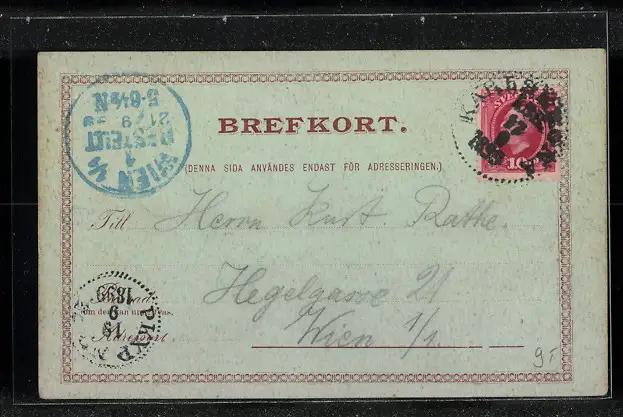 BREFKORT.
(DENNA SIDA ANVÄNDES ENDAST FÖR ADRESSERINGEN.)
Till Herrn Kurt. Rathe.
Hegelgasse 21
Wien 1/1.
WIEN 1/1
1
BESTELLT
21/9 99
5-6½N
19
9
1899
10
9-